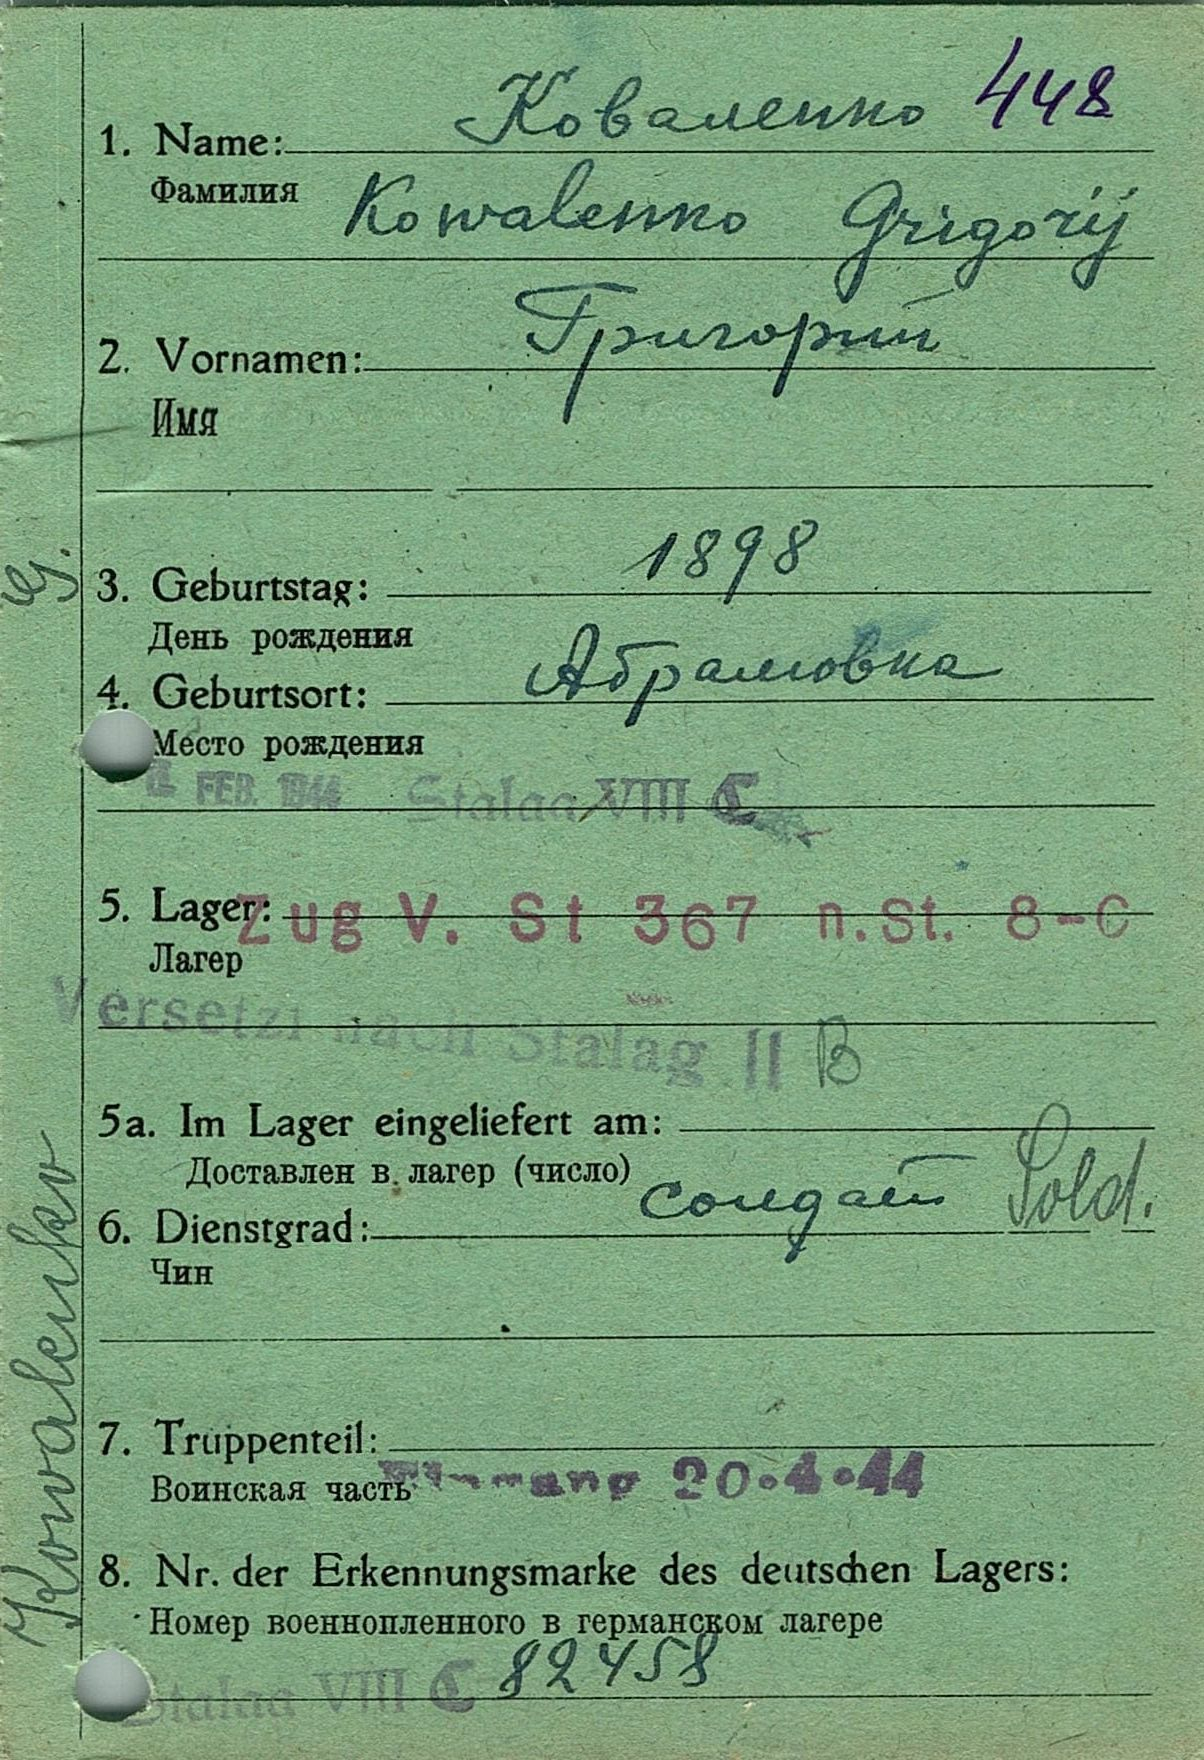 Коваленко 448
1. Name:
Фамилия
Kowalenko Grigorij
Григорий
2. Vornamen:
Имя
1898
3. Geburtstag:
День рождения
Абрамовка
4. Geburtsort:
Место рождения
FEB. 1944 Stalag VIII C
5. Lager: Zug V. St 367 n.St. 8-C
Лагер
Versetzt nach Stalag II B
5a. Im Lager eingeliefert am:
Доставлен в лагер (число)
6. Dienstgrad: солдат Sold.
Чин
7. Truppenteil:
Воинская часть
20.4.44
8. Nr. der Erkennungsmarke des deutschen Lagers:
Номер военнопленного в германском лагере
Stalag VIII C 82458
Kowalenko G.